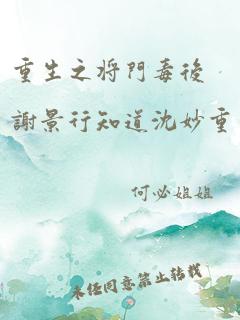 重生之将門毒後
謝景行知道沈妙重
何必姐姐
未经同意禁止转载